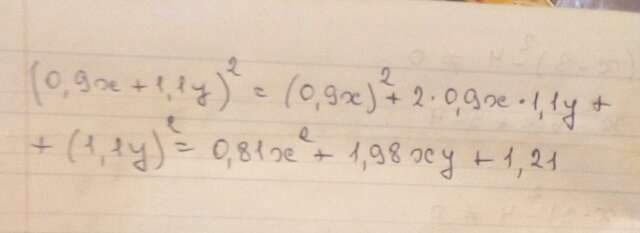 (0,9x + 1,1y)² = (0,9x)² + 2·0,9x·1,1y +
+ (1,1y)² = 0,81x² + 1,98xy + 1,21